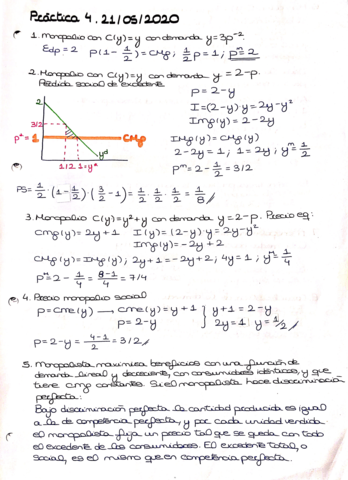 Práctica 4. 21/05/2020
1. Monopolio con C(y)=y con demanda y=3p⁻².
Edp = 2 p(1-1/2)=CMg; 1/2 p=1; pᵐ=2
2. Monopolio con C(y)=y con demanda y=2-p.
Pérdida social de excedente
p=2-y
I=(2-y)y=2y-y²
Img(y)=2-2y
2
3/2
p*=1
CMg
1/2 1=y*
yᵈ
IMg(y)=CMg(y)
2-2y=1; 1=2y; yᵐ=1/2
pᵐ=2-1/2=3/2
PS=1/2·(1-1/2)·(3/2-1)=1/2·1/2·1/2=1/8
3. Monopolio C(y)=y²+y con demanda y=2-p. Precio eq:
Cmg(y)=2y+1 I(y)=(2-y)y=2y-y²
Img(y)=-2y+2
CMg(y)=IMg(y); 2y+1=-2y+2; 4y=1; yᵐ=1/4
pᵐ=2-1/4=8-1/4=7/4
4. Precio monopolio social
p=Cme(y) → cme(y)=y+1 } y+1=2-y
p=2-y } 2y=1 y=1/2
p=2-y=4-1/2=3/2
5. Monopolista maximiza beneficios con una función de
demanda lineal y decreciente, con consumidores idénticos, y que
tiene cmg constantes. Si el monopolista hace discriminación
perfecta:
Bajo discriminación perfecta la cantidad producida es igual
a la de competencia perfecta, y por cada unidad vendida
el monopolista fija un precio tal que se queda con todo
el excedente de los consumidores. El excedente total, o
social, es el mismo que en competencia perfecta.